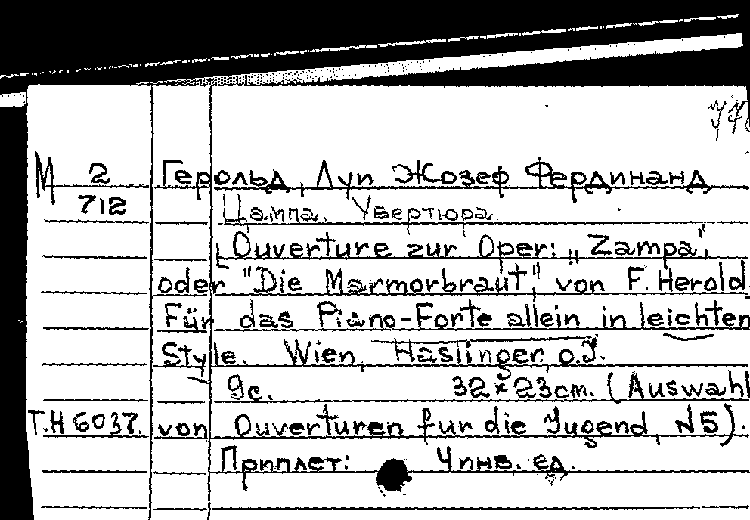 М 2 Герольд, Луи Жозеф Фердинанд
712 Цампа. Увертюра
Ouverture zur Oper: „Zampa",
oder "Die Marmorbraut", von F. Herold.
Für das Piano-Forte allein in leichten
Style. Wien, Haslinger, o.J.
9с. 32x23cm. (Auswahl
T.H 6037. von Ouverturen fur die Jugend, N5).
Приплет: 4 инв. ед.